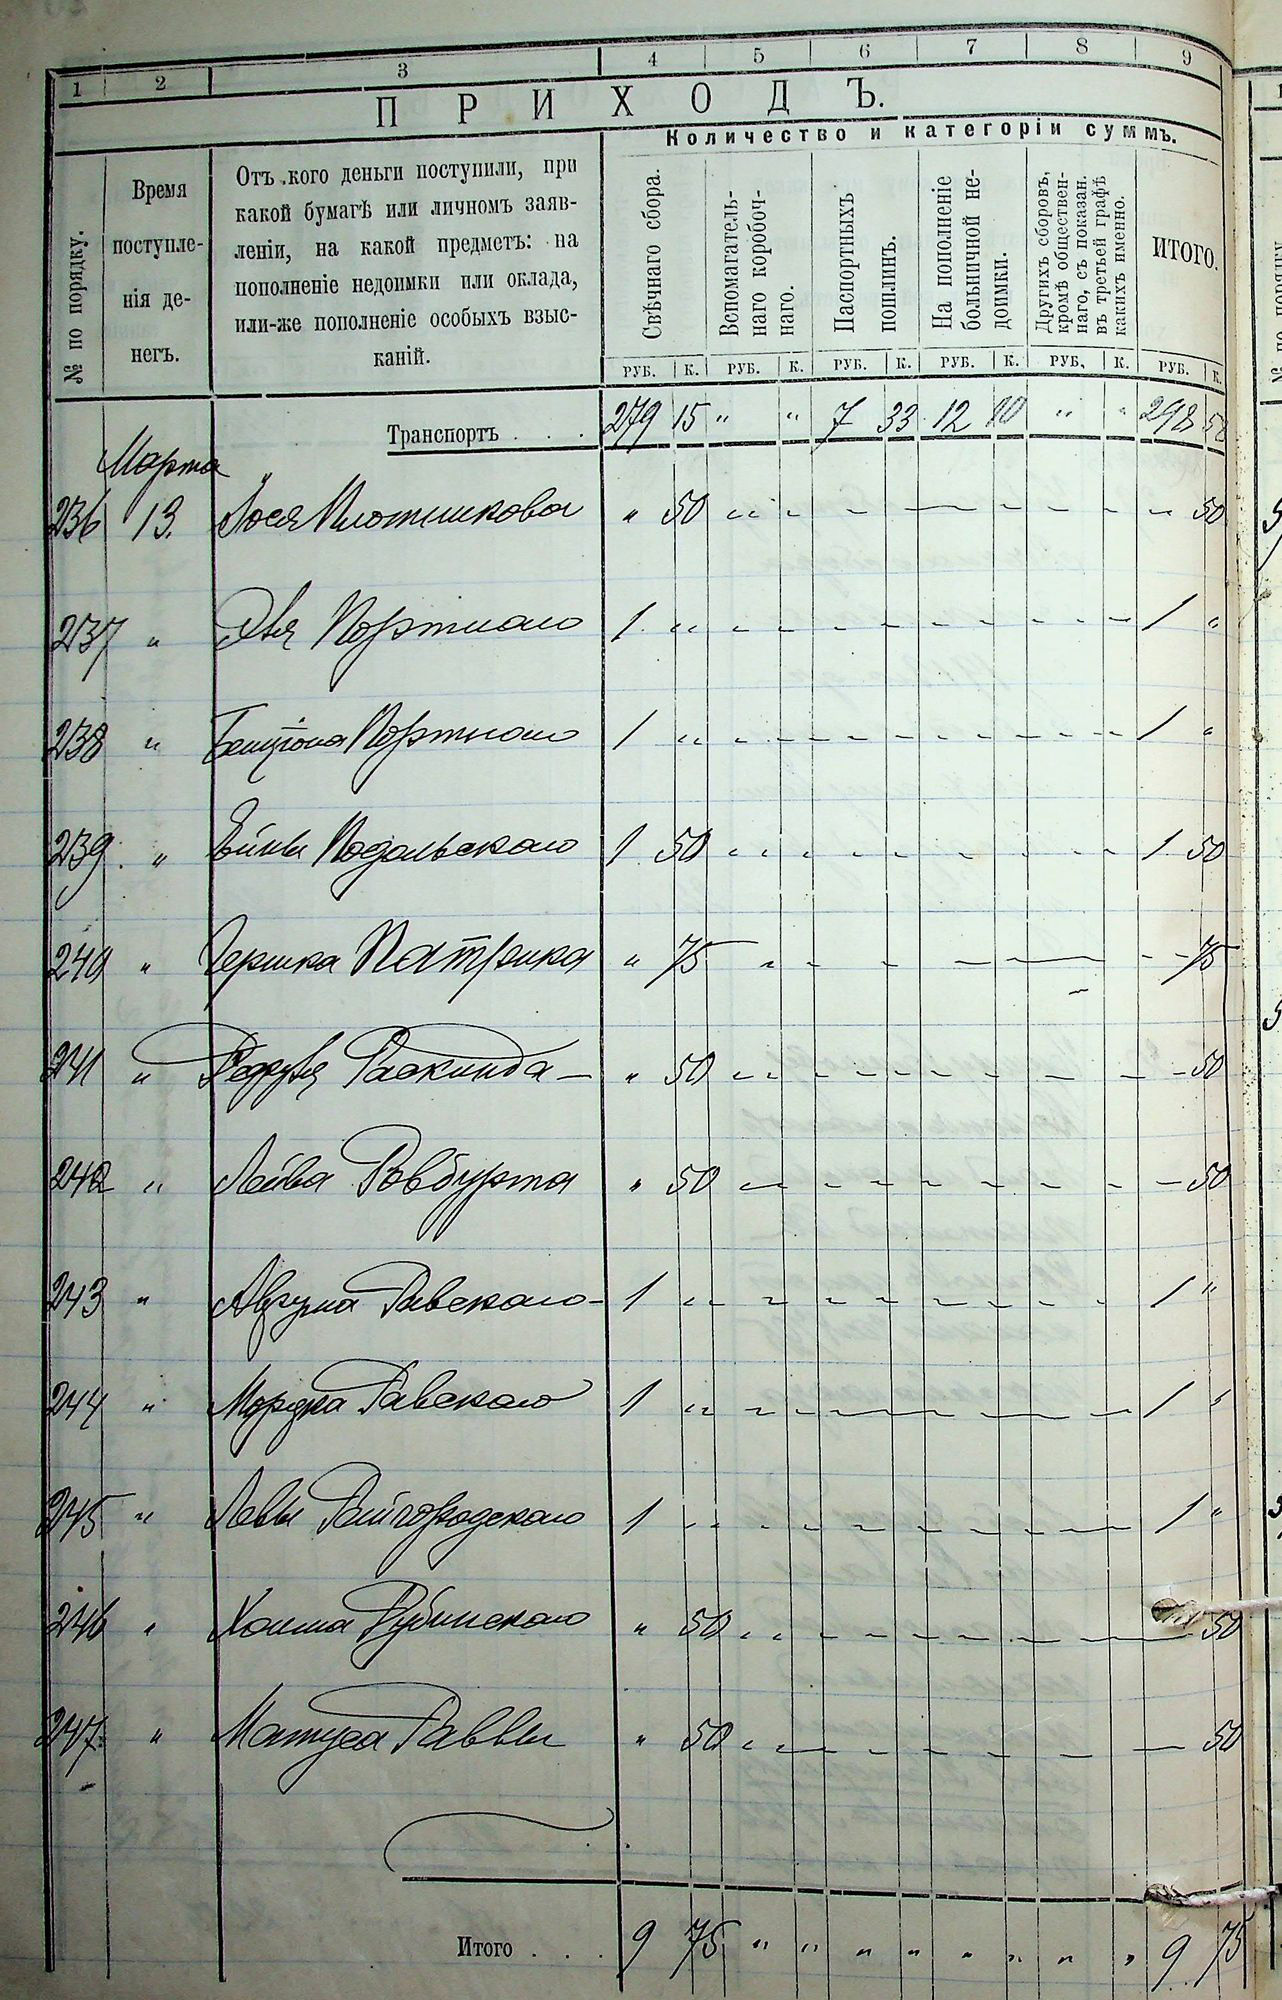 1 2 3 4 5 6 7 8 9
ПРИХОДЪ.
Количество и категоріи суммъ.
№ по порядку.
Время
поступле-
нія де-
негъ.
Отъ кого деньги поступили, при
какой бумагѣ или личномъ заяв-
леніи, на какой предметъ: на
пополненіе недоимки или оклада,
или-же пополненіе особыхъ взыс-
каній.
Свѣчнаго сбора.
Вспомагатель-
наго коробоч-
наго.
Паспортныхъ
пошлинъ.
На пополненіе
больничной не-
доимки.
Другихъ сборовъ,
кромѣ обществен-
наго, съ показан.
въ третьей графѣ
какихъ именно.
ИТОГО.
РУБ. К. РУБ. К. РУБ. К. РУБ. К. РУБ. К. РУБ. К.
Транспортъ . . . 279 15 " " 7 33 12 10 " " 298 58
Марта
236 13. Іося Плотникова " 50 50
237 " Портного 1 " 1 "
238 " Бенціона Портного 1 " 1 "
239 " Подольскаго 1 50 1 50
240 " Гершка Патрика " 75 75
241 " Раскинда " 50 50
242 " Лейба " 50 50
243 " Аврума Равскаго 1 " 1 "
244 " Мордка Равскаго 1 " 1 "
245 " Райгородскаго 1 " 1 "
246 " Хаима Рубинскаго " 50 50
247 " Матуса Раввы " 50 50
Итого . . . 9 75 " " " " " " " " 9 75